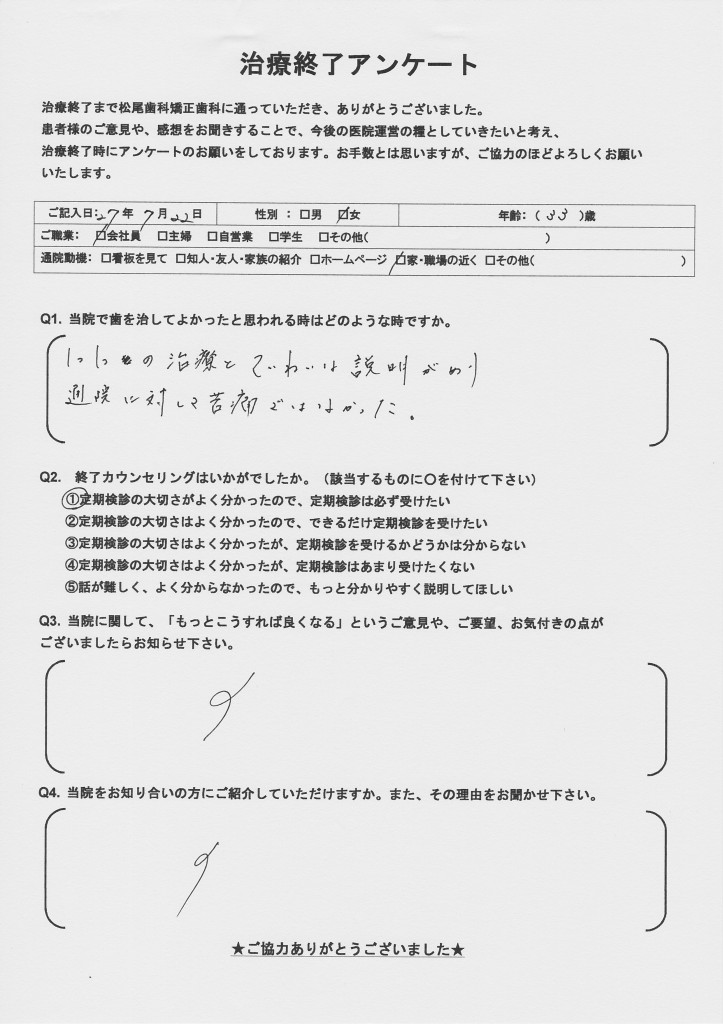 治療終了アンケート
治療終了まで松尾歯科矯正歯科に通っていただき、ありがとうございました。
患者様のご意見や、感想をお聞きすることで、今後の医院運営の糧としていきたいと考え、
治療終了時にアンケートのお願いをしております。お手数とは思いますが、ご協力のほどよろしくお願い
いたします。
ご記入日:27年 7月22日 性別 : □男 ☑女 年齢:( 33 )歳
ご職業: ☑会社員 □主婦 □自営業 □学生 □その他( )
通院動機: □看板を見て □知人・友人・家族の紹介 □ホームページ ☑家・職場の近く □その他( )
Q1. 当院で歯を治してよかったと思われる時はどのような時ですか。
の治療と ていねいな説明があり
通院に対して苦痛ではなかった。
Q2. 終了カウンセリングはいかがでしたか。(該当するものに〇を付けて下さい)
①定期検診の大切さがよく分かったので、定期検診は必ず受けたい
②定期検診の大切さはよく分かったので、できるだけ定期検診を受けたい
③定期検診の大切さはよく分かったが、定期検診を受けるかどうかは分からない
④定期検診の大切さはよく分かったが、定期検診はあまり受けたくない
⑤話が難しく、よく分からなかったので、もっと分かりやすく説明してほしい
Q3. 当院に関して、「もっとこうすれば良くなる」というご意見や、ご要望、お気付きの点が
ございましたらお知らせ下さい。
Q4. 当院をお知り合いの方にご紹介していただけますか。また、その理由をお聞かせ下さい。
★ご協力ありがとうございました★